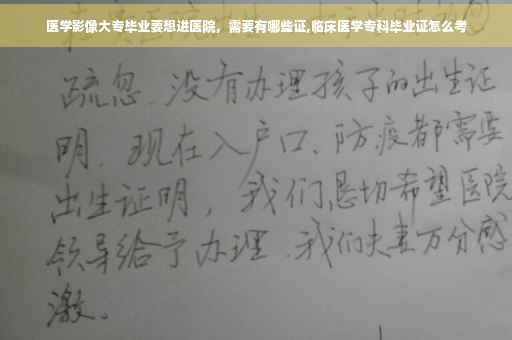 医学影像大专毕业要想进医院，需要有哪些证,临床医学专科毕业证怎么考
疏忽.没有办理孩子的出生证
明.现在入户口、防疫都需要
出生证明，我们恳切希望医院
领导给予办理.我们夫妻万分感
激。